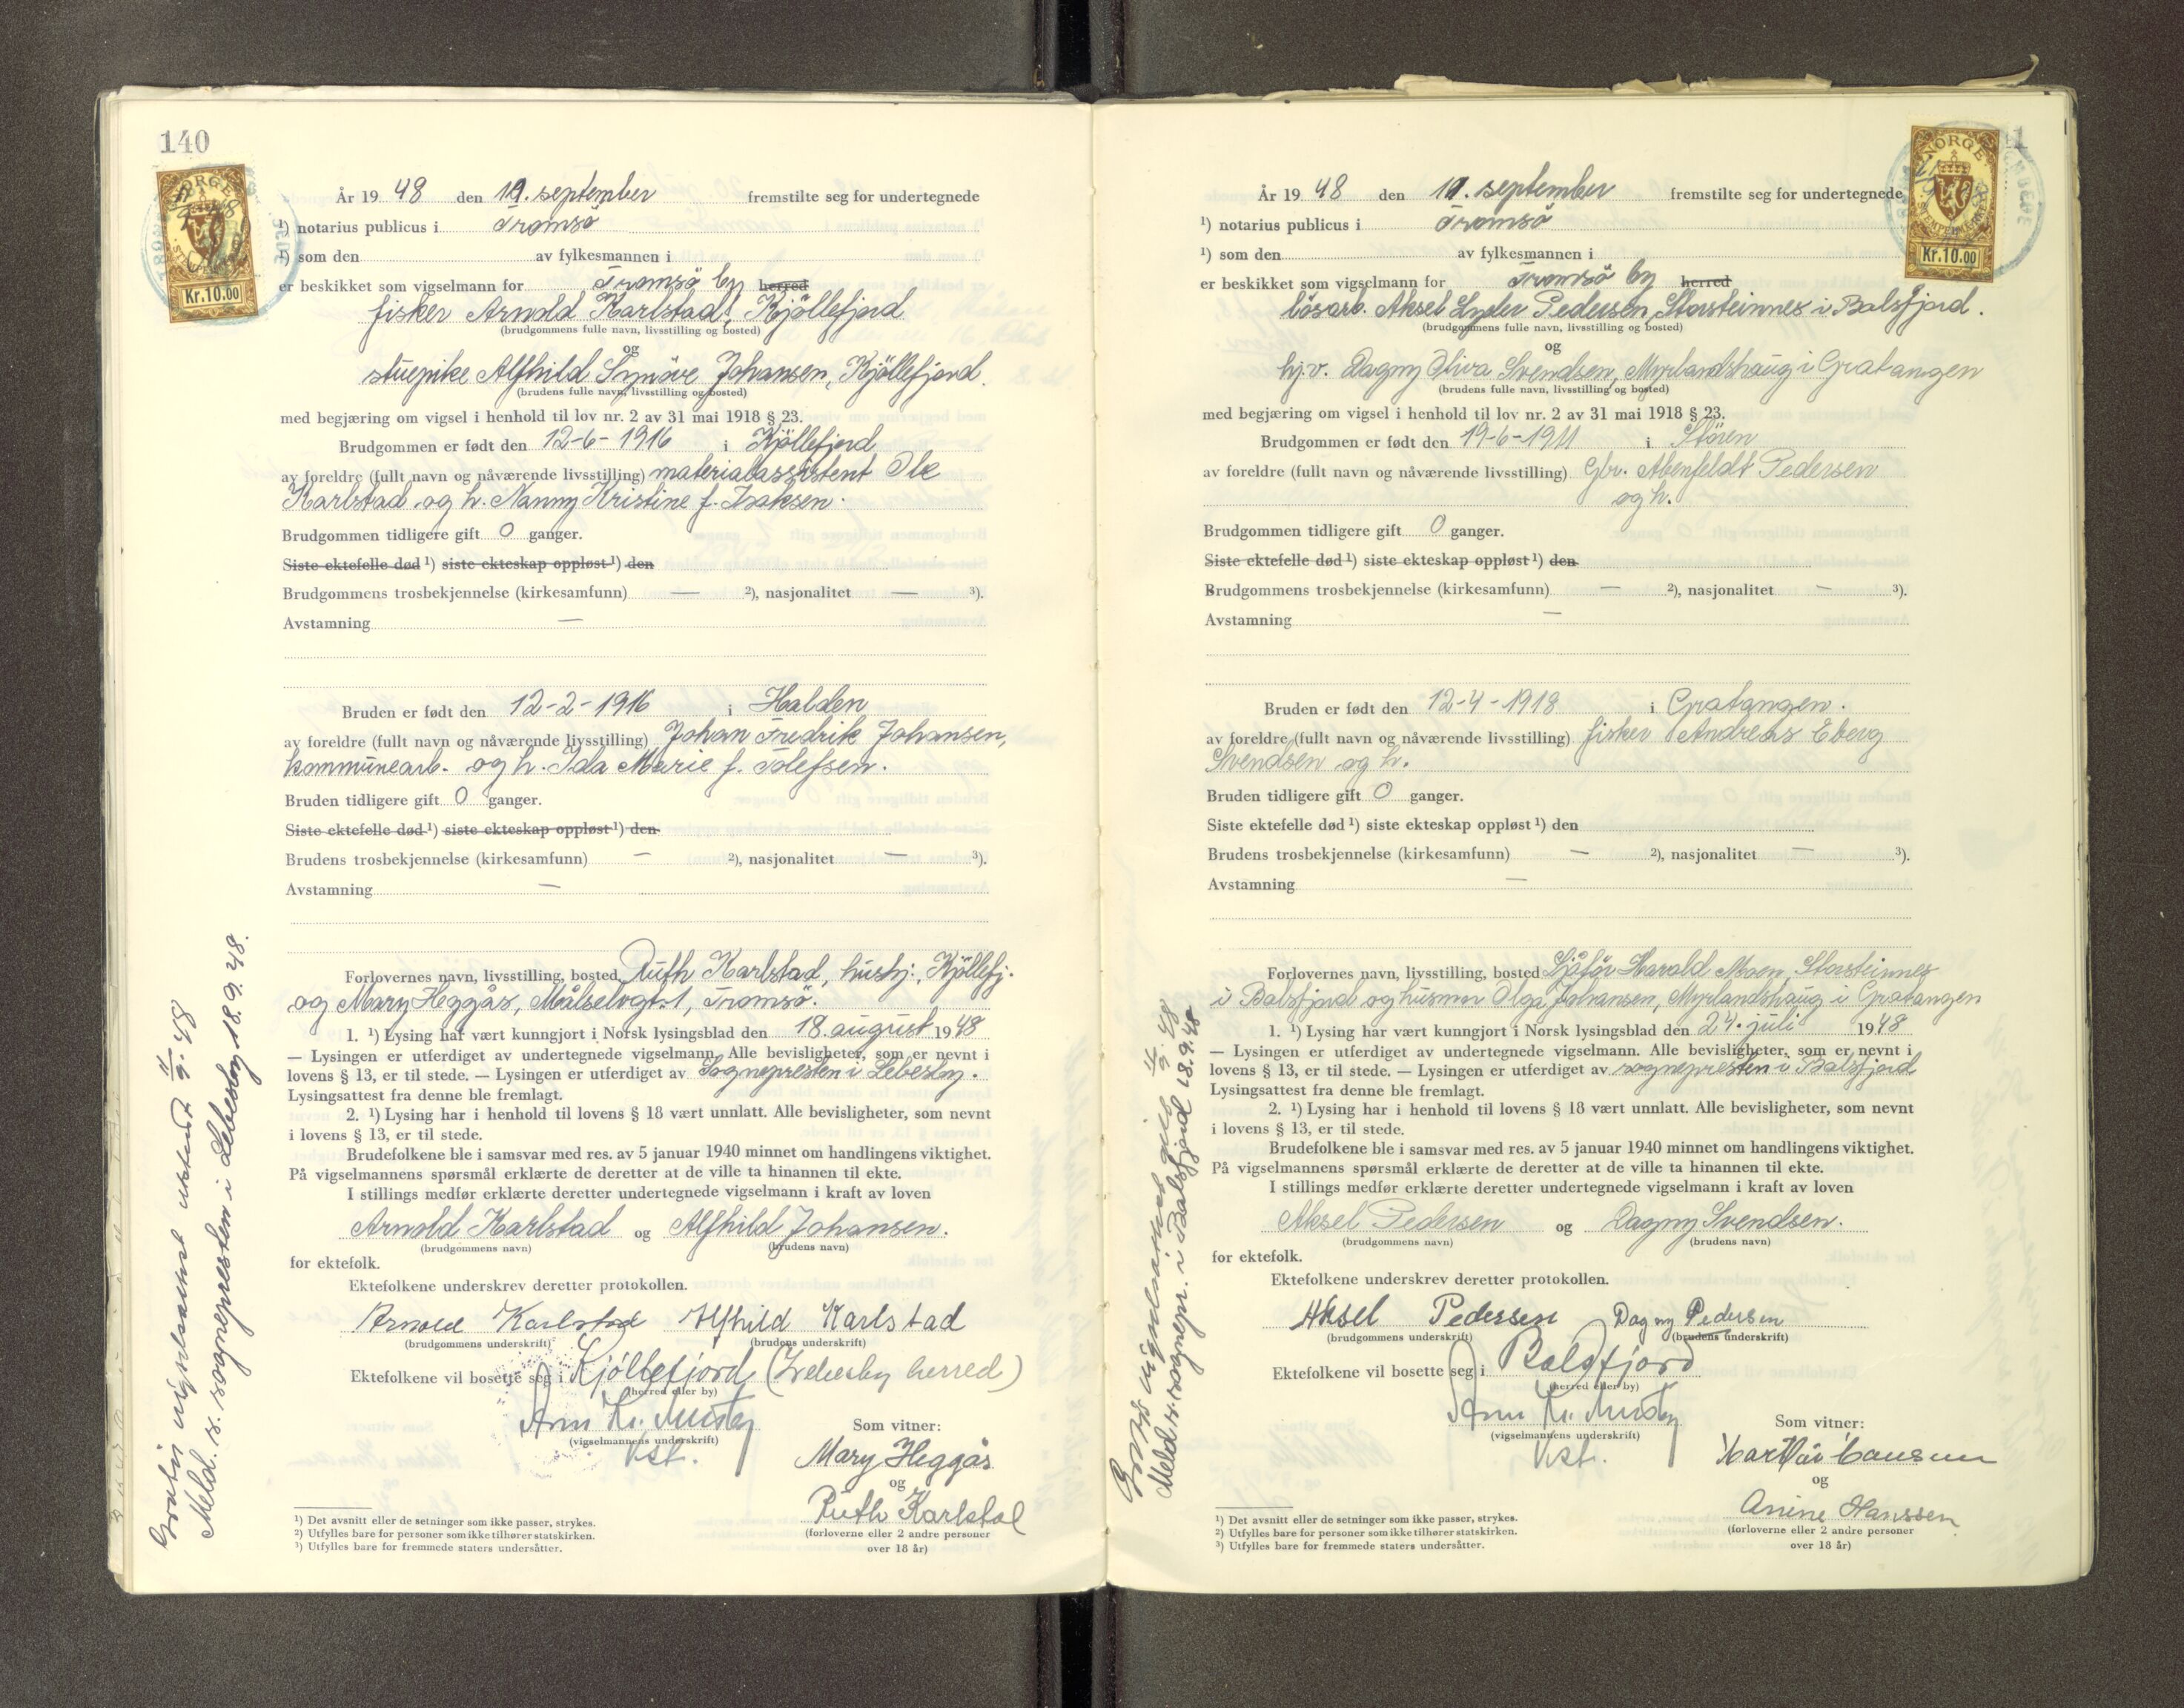 140
NORGE
Kr.10.00
År 19 48 den 11. september fremstilte seg for undertegnede
¹) notarius publicus i Tromsö
¹) som den av fylkesmannen i
er beskikket som vigselmann for Tromsö by herred
fisker Arnold Karlstad, Kjöllefjord
(brudgommens fulle navn, livsstilling og bosted)
og
stuepike Alfhild Synöve Johansen, Kjöllefjord.
(brudens fulle navn, livsstilling og bosted)
med begjæring om vigsel i henhold til lov nr. 2 av 31 mai 1918 § 23.
Brudgommen er født den 12-6-1916 i Kjöllefjord
av foreldre (fullt navn og nåværende livsstilling) materialassistent Ole
Karlstad og h. Nanny Kristine f. Isaksen.
Brudgommen tidligere gift 0 ganger.
Siste ektefelle død ¹) siste ekteskap oppløst ¹) den
Brudgommens trosbekjennelse (kirkesamfunn) — ²), nasjonalitet — ³).
Avstamning —
Bruden er født den 12-2-1916 i Halden
av foreldre (fullt navn og nåværende livsstilling) Johan Fredrik Johansen,
kommunearb. og h. Ida Marie f. Tolefsen.
Bruden tidligere gift 0 ganger.
Siste ektefelle død ¹) siste ekteskap oppløst ¹) den
Brudens trosbekjennelse (kirkesamfunn) — ²), nasjonalitet — ³).
Avstamning —
Forlovernes navn, livsstilling, bosted Ruth Karlstad, hushj., Kjöllefj.
og Mary Heggås, Målselvgt. 1, Tromsö.
1. ¹) Lysing har vært kunngjort i Norsk lysingsblad den 18. august 1948
— Lysingen er utferdiget av undertegnede vigselmann. Alle bevisligheter, som er nevnt i
lovens § 13, er til stede. — Lysingen er utferdiget av Sognepresten i Lebesby.
Lysingsattest fra denne ble fremlagt.
2. ¹) Lysing har i henhold til lovens § 18 vært unnlatt. Alle bevisligheter, som nevnt
i lovens § 13, er til stede.
Brudefolkene ble i samsvar med res. av 5 januar 1940 minnet om handlingens viktighet.
På vigselmannens spørsmål erklærte de deretter at de ville ta hinannen til ekte.
I stillings medfør erklærte deretter undertegnede vigselmann i kraft av loven
Arnold Karlstad og Alfhild Johansen.
(brudgommens navn) (brudens navn)
for ektefolk.
Ektefolkene underskrev deretter protokollen.
Arnold Karlstad Alfhild Karlstad
(brudgommens underskrift) (brudens underskrift)
Ektefolkene vil bosette seg i Kjöllefjord (Lebesby herred)
(herred eller by)
(vigselmannens underskrift)
Som vitner:
Mary Heggås
og
Ruth Karlstad
(forloverne eller 2 andre personer
over 18 år)
¹) Det avsnitt eller de setninger som ikke passer, strykes.
²) Utfylles bare for personer som ikke tilhører statskirken.
³) Utfylles bare for fremmede staters undersåtter.
vigselsattest utstedt 11/9-48
Meld. s. sognepresten i Lebesby 18.9.48.
1
NORGE
Kr.10.00
År 19 48 den 11. september fremstilte seg for undertegnede
¹) notarius publicus i Tromsö
¹) som den av fylkesmannen i
er beskikket som vigselmann for Tromsö by herred
lösarb. Aksel Lyder Pedersen, Storsteinnes i Balsfjord.
(brudgommens fulle navn, livsstilling og bosted)
og
hj.v. Dagny Oliva Svendsen, Myrlandshaug i Gratangen
(brudens fulle navn, livsstilling og bosted)
med begjæring om vigsel i henhold til lov nr. 2 av 31 mai 1918 § 23.
Brudgommen er født den 19-6-1911 i Stören
av foreldre (fullt navn og nåværende livsstilling) Gbr. Abenfeldt Pedersen
og h.
Brudgommen tidligere gift 0 ganger.
Siste ektefelle død ¹) siste ekteskap oppløst ¹) den
Brudgommens trosbekjennelse (kirkesamfunn) — ²), nasjonalitet — ³).
Avstamning —
Bruden er født den 12-4-1918 i Gratangen.
av foreldre (fullt navn og nåværende livsstilling) fisker Andreas Eberg
Svendsen og h.
Bruden tidligere gift 0 ganger.
Siste ektefelle død ¹) siste ekteskap oppløst ¹) den
Brudens trosbekjennelse (kirkesamfunn) — ²), nasjonalitet — ³).
Avstamning —
Forlovernes navn, livsstilling, bosted Sjåför Harald Moen, Storsteinnes
i Balsfjord og husmor Olga Johansen, Myrlandshaug i Gratangen
1. ¹) Lysing har vært kunngjort i Norsk lysingsblad den 24. juli 1948
— Lysingen er utferdiget av undertegnede vigselmann. Alle bevisligheter, som er nevnt i
lovens § 13, er til stede. — Lysingen er utferdiget av sognepresten i Balsfjord
Lysingsattest fra denne ble fremlagt.
2. ¹) Lysing har i henhold til lovens § 18 vært unnlatt. Alle bevisligheter, som nevnt
i lovens § 13, er til stede.
Brudefolkene ble i samsvar med res. av 5 januar 1940 minnet om handlingens viktighet.
På vigselmannens spørsmål erklærte de deretter at de ville ta hinannen til ekte.
I stillings medfør erklærte deretter undertegnede vigselmann i kraft av loven
Aksel Pedersen og Dagny Svendsen.
(brudgommens navn) (brudens navn)
for ektefolk.
Ektefolkene underskrev deretter protokollen.
Aksel Pedersen Dagny Pedersen
(brudgommens underskrift) (brudens underskrift)
Ektefolkene vil bosette seg i Balsfjord
(herred eller by)
(vigselmannens underskrift)
Som vitner:
og
Anine Hanssen
(forloverne eller 2 andre personer
over 18 år)
¹) Det avsnitt eller de setninger som ikke passer, strykes.
²) Utfylles bare for personer som ikke tilhører statskirken.
³) Utfylles bare for fremmede staters undersåtter.
11/9-48
Meld. s. sognepr. i Balsfjord 18.9.48